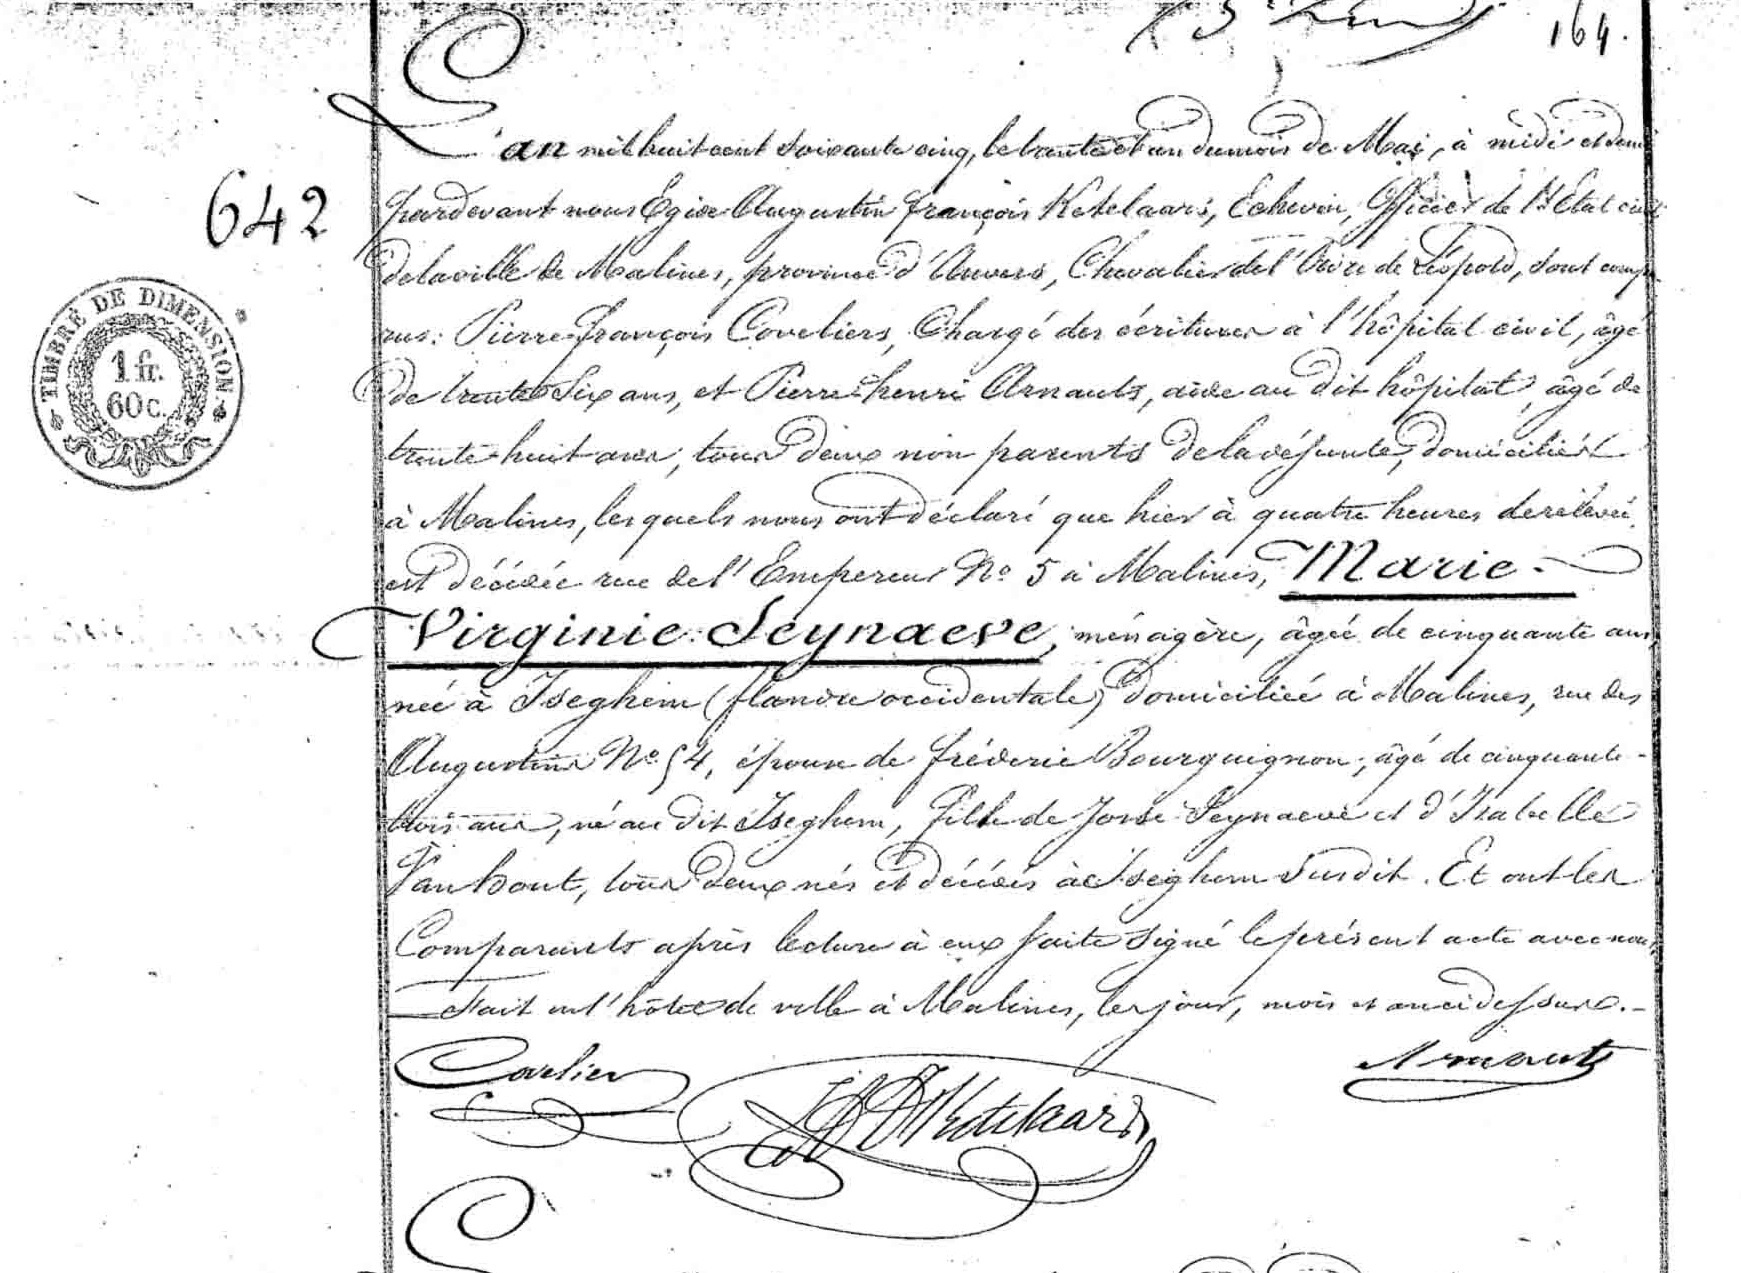 164.
L'an mil huit cent soixante cinq, le trente et un du mois de Mai, à midi et demi
642
pardevant nous Egide Augustin François Ketelaars, Echevin, Officier de l'Etat civil
de la ville de Malines, province d'Anvers, Chevalier de l'Ordre de Léopold, sont compa-
rus: Pierre François Coveliers, Chargé des écritures à l'hôpital civil, âgé
TIMBRE DE DIMENSION
1 fr.
60 c.
de trente six ans, et Pierre henri Arnauts, aide au dit hôpital, âgé de
trente-huit ans, tous deux non parents de la défunte, domiciliés
à Malines, lesquels nous ont déclaré que hier à quatre heures de relevée
est décédée rue de l'Empereur No 5 à Malines, Marie-
Virginie Seynaeve, ménagère, âgée de cinquante ans,
née à Iseghem (flandre occidentale) domiciliée à Malines, rue des
Augustins No 54, épouse de fréderic Bourguignon, âgé de cinquante-
trois ans, né au dit Iseghem, fille de Josse Seynaeve et d'Isabelle
Vanhout, tous deux nés et décédés à Iseghem susdit. Et ont les
Comparants après lecture à eux faite signé le présent acte avec nous,
Fait en l'hôtel de ville à Malines, les jour, mois et an ci dessus.-
Coveliers Ketelaars Arnauts